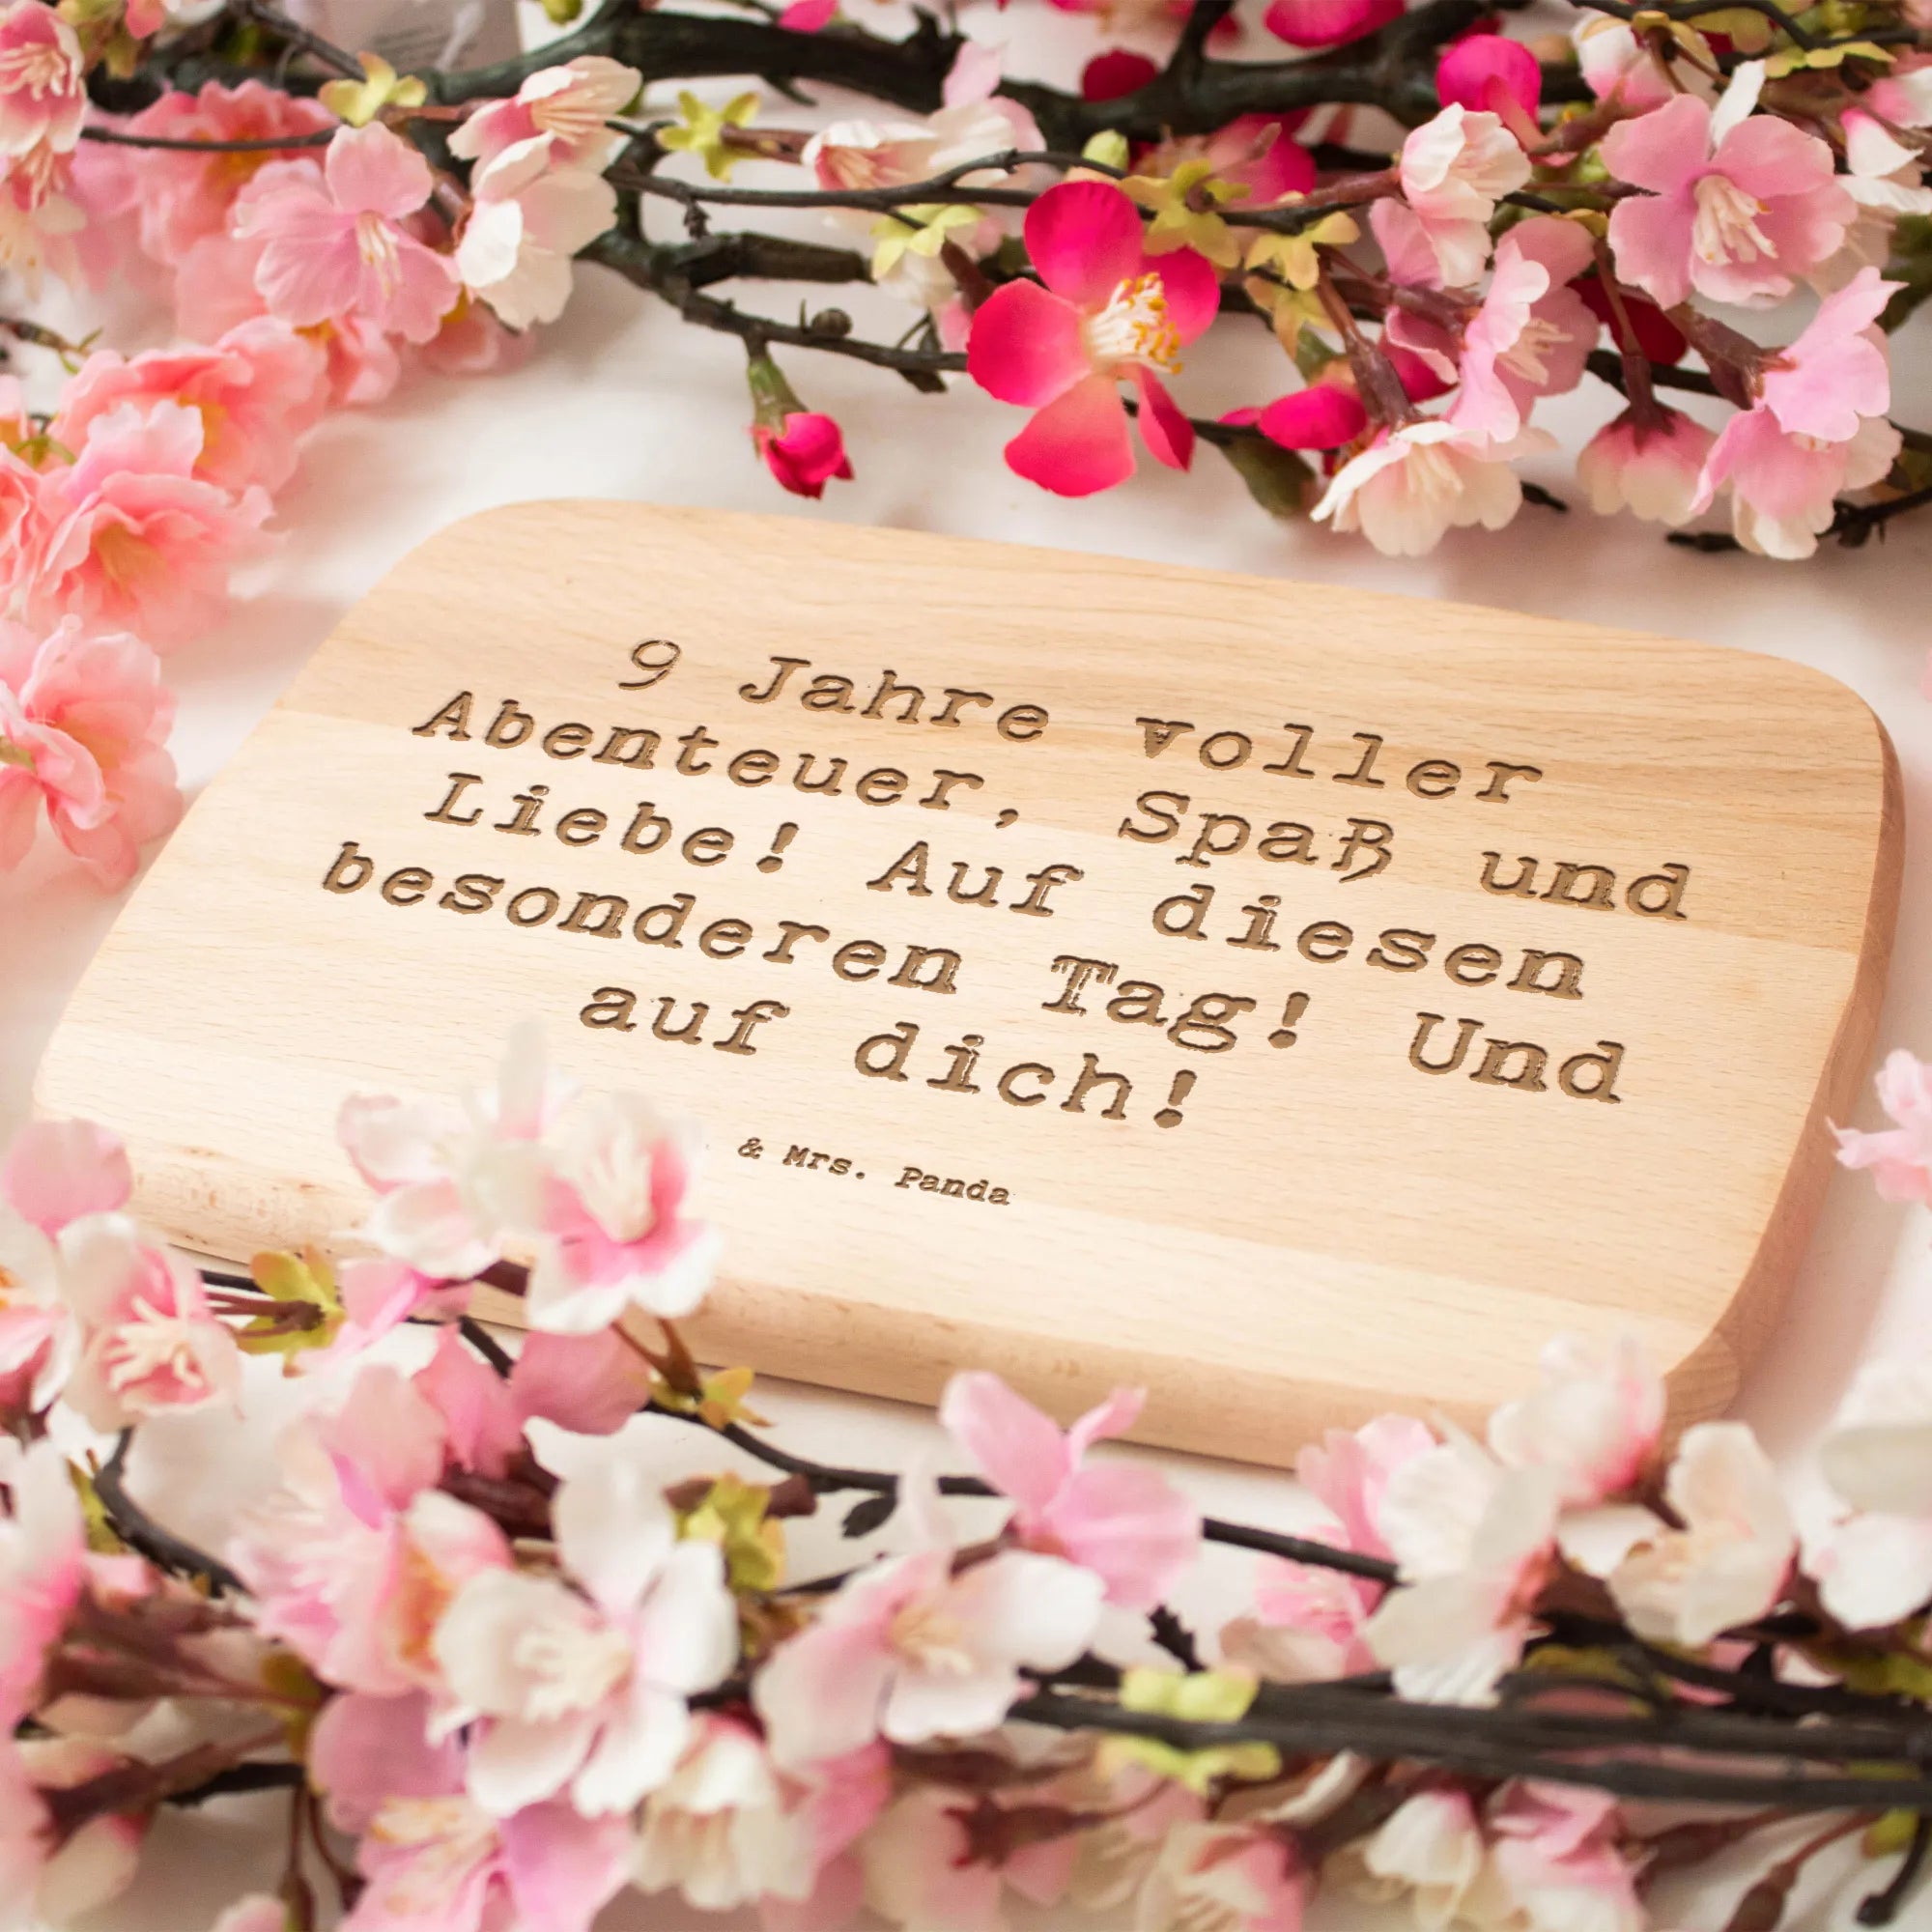 9 Jahre voller
Abenteuer, Spaß und
Liebe! Auf diesen
besonderen Tag! Und
auf dich!
& Mrs. Panda